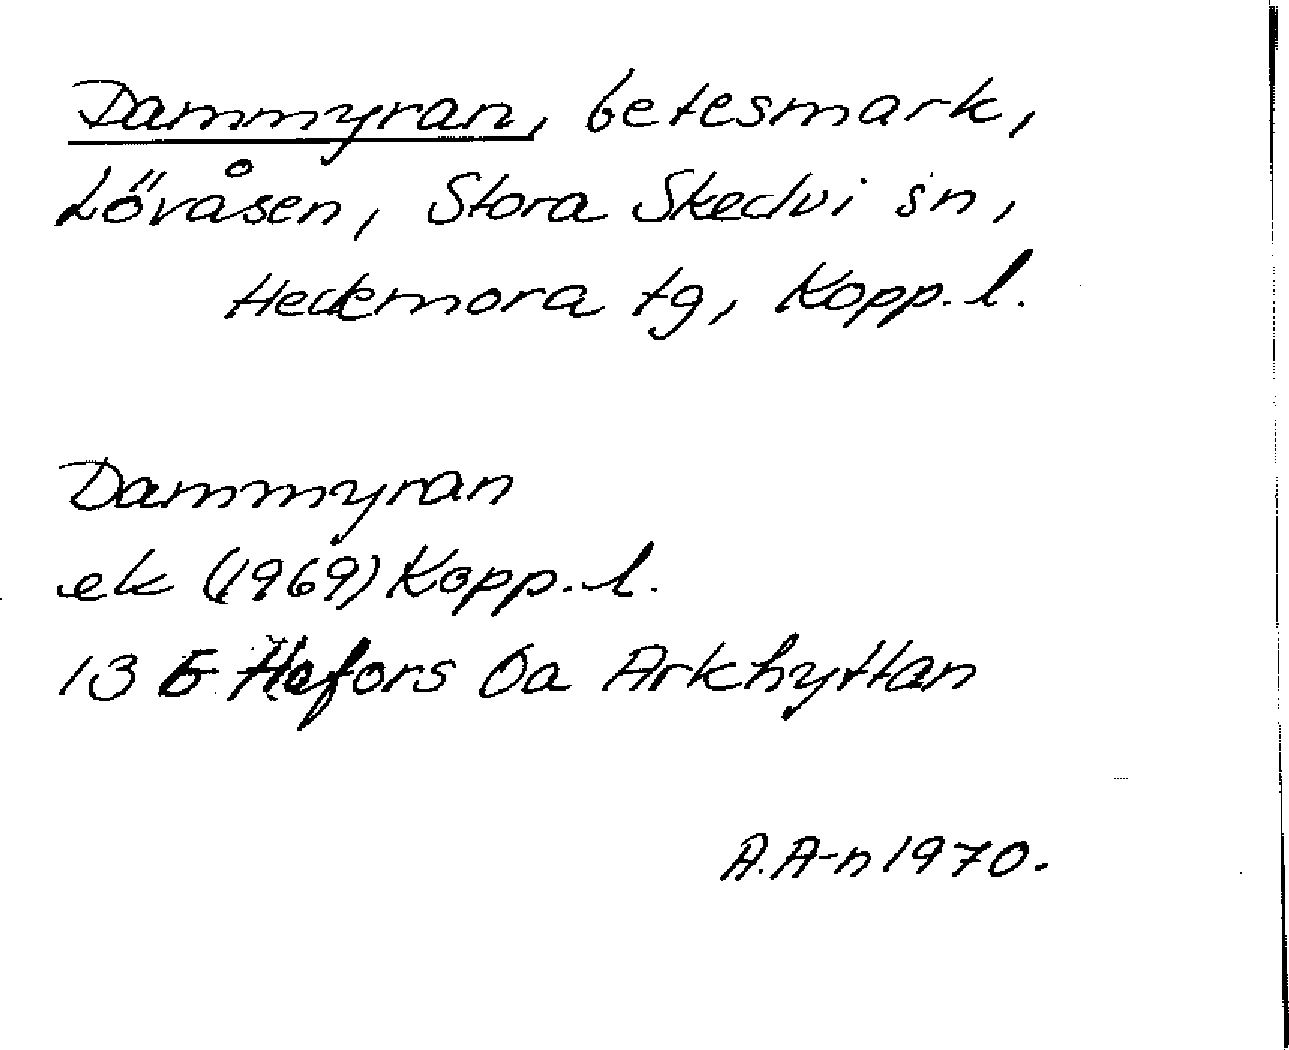 Dammyran, betesmark,
Lövåsen, Stora Skedvi sn,
Hedemora tg, Kopp. l.
Dammyran
ek (1969) Kopp. l.
13 G Hofors 0a Arkhyttan
A. A-n 1970.